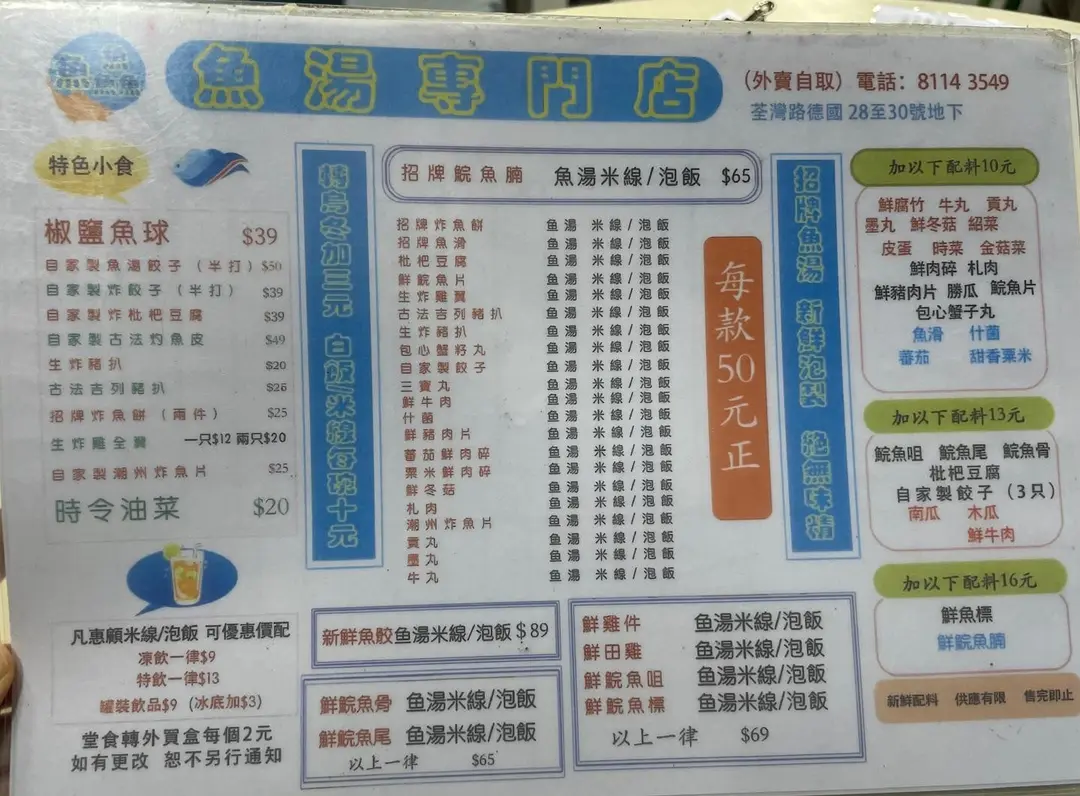 魚湯專門店
(外賣自取) 電話: 8114 3549
荃灣路德圍 28至30號地下
特色小食
椒鹽魚球 $39
自家製魚湯餃子 (半打) $50
自家製炸餃子 (半打) $39
自家製炸枇杷豆腐 $39
自家製古法灼魚皮 $49
生炸豬扒 $20
古法吉列豬扒 $26
招牌炸魚餅 (兩件) $25
生炸雞全翼 一只$12 兩只$20
自家製潮州炸魚片 $25
時令油菜 $20
凡惠顧米線/泡飯 可優惠價配
凍飲一律$9
特飲一律$13
罐裝飲品$9 (冰底加$3)
堂食轉外買盒每個2元
如有更改 恕不另行通知
轉烏冬加三元 白飯/米線每碗十元
招牌鯇魚腩 魚湯米線/泡飯 $65
招牌炸魚餅 鱼湯 米線/泡飯
招牌魚滑 鱼湯 米線/泡飯
枇杷豆腐 鱼湯 米線/泡飯
鮮鯇魚片 鱼湯 米線/泡飯
生炸雞翼 鱼湯 米線/泡飯
古法吉列豬扒 鱼湯 米線/泡飯
生炸豬扒 鱼湯 米線/泡飯
包心蟹籽丸 鱼湯 米線/泡飯
自家製餃子 鱼湯 米線/泡飯
三寶丸 鱼湯 米線/泡飯
鮮牛肉 鱼湯 米線/泡飯
什菌 鱼湯 米線/泡飯
鮮豬肉片 鱼湯 米線/泡飯
蕃茄鮮肉碎 鱼湯 米線/泡飯
粟米鮮肉碎 鱼湯 米線/泡飯
鮮冬菇 鱼湯 米線/泡飯
札肉 鱼湯 米線/泡飯
潮州炸魚片 鱼湯 米線/泡飯
貢丸 鱼湯 米線/泡飯
墨丸 鱼湯 米線/泡飯
牛丸 鱼湯 米線/泡飯
每款50元正
新鮮魚骹鱼湯米線/泡飯 $89
鮮鯇魚骨 鱼湯米線/泡飯
鮮鯇魚尾 鱼湯米線/泡飯
以上一律 $65
鮮雞件 鱼湯米線/泡飯
鮮田雞 鱼湯米線/泡飯
鮮鯇魚咀 鱼湯米線/泡飯
鮮鯇魚標 鱼湯米線/泡飯
以上一律 $69
招牌魚湯 新鮮泡製 絕無味精
加以下配料10元
鮮腐竹 牛丸 貢丸
墨丸 鮮冬菇 紹菜
皮蛋 時菜 金菇菜
鮮肉碎 札肉
鮮豬肉片 勝瓜 鯇魚片
包心蟹子丸
魚滑 什菌
蕃茄 甜香粟米
加以下配料13元
鯇魚咀 鯇魚尾 鯇魚骨
枇杷豆腐
自家製餃子 (3只)
南瓜 木瓜
鮮牛肉
加以下配料16元
鮮魚標
鮮鯇魚腩
新鮮配料 供應有限 售完即止